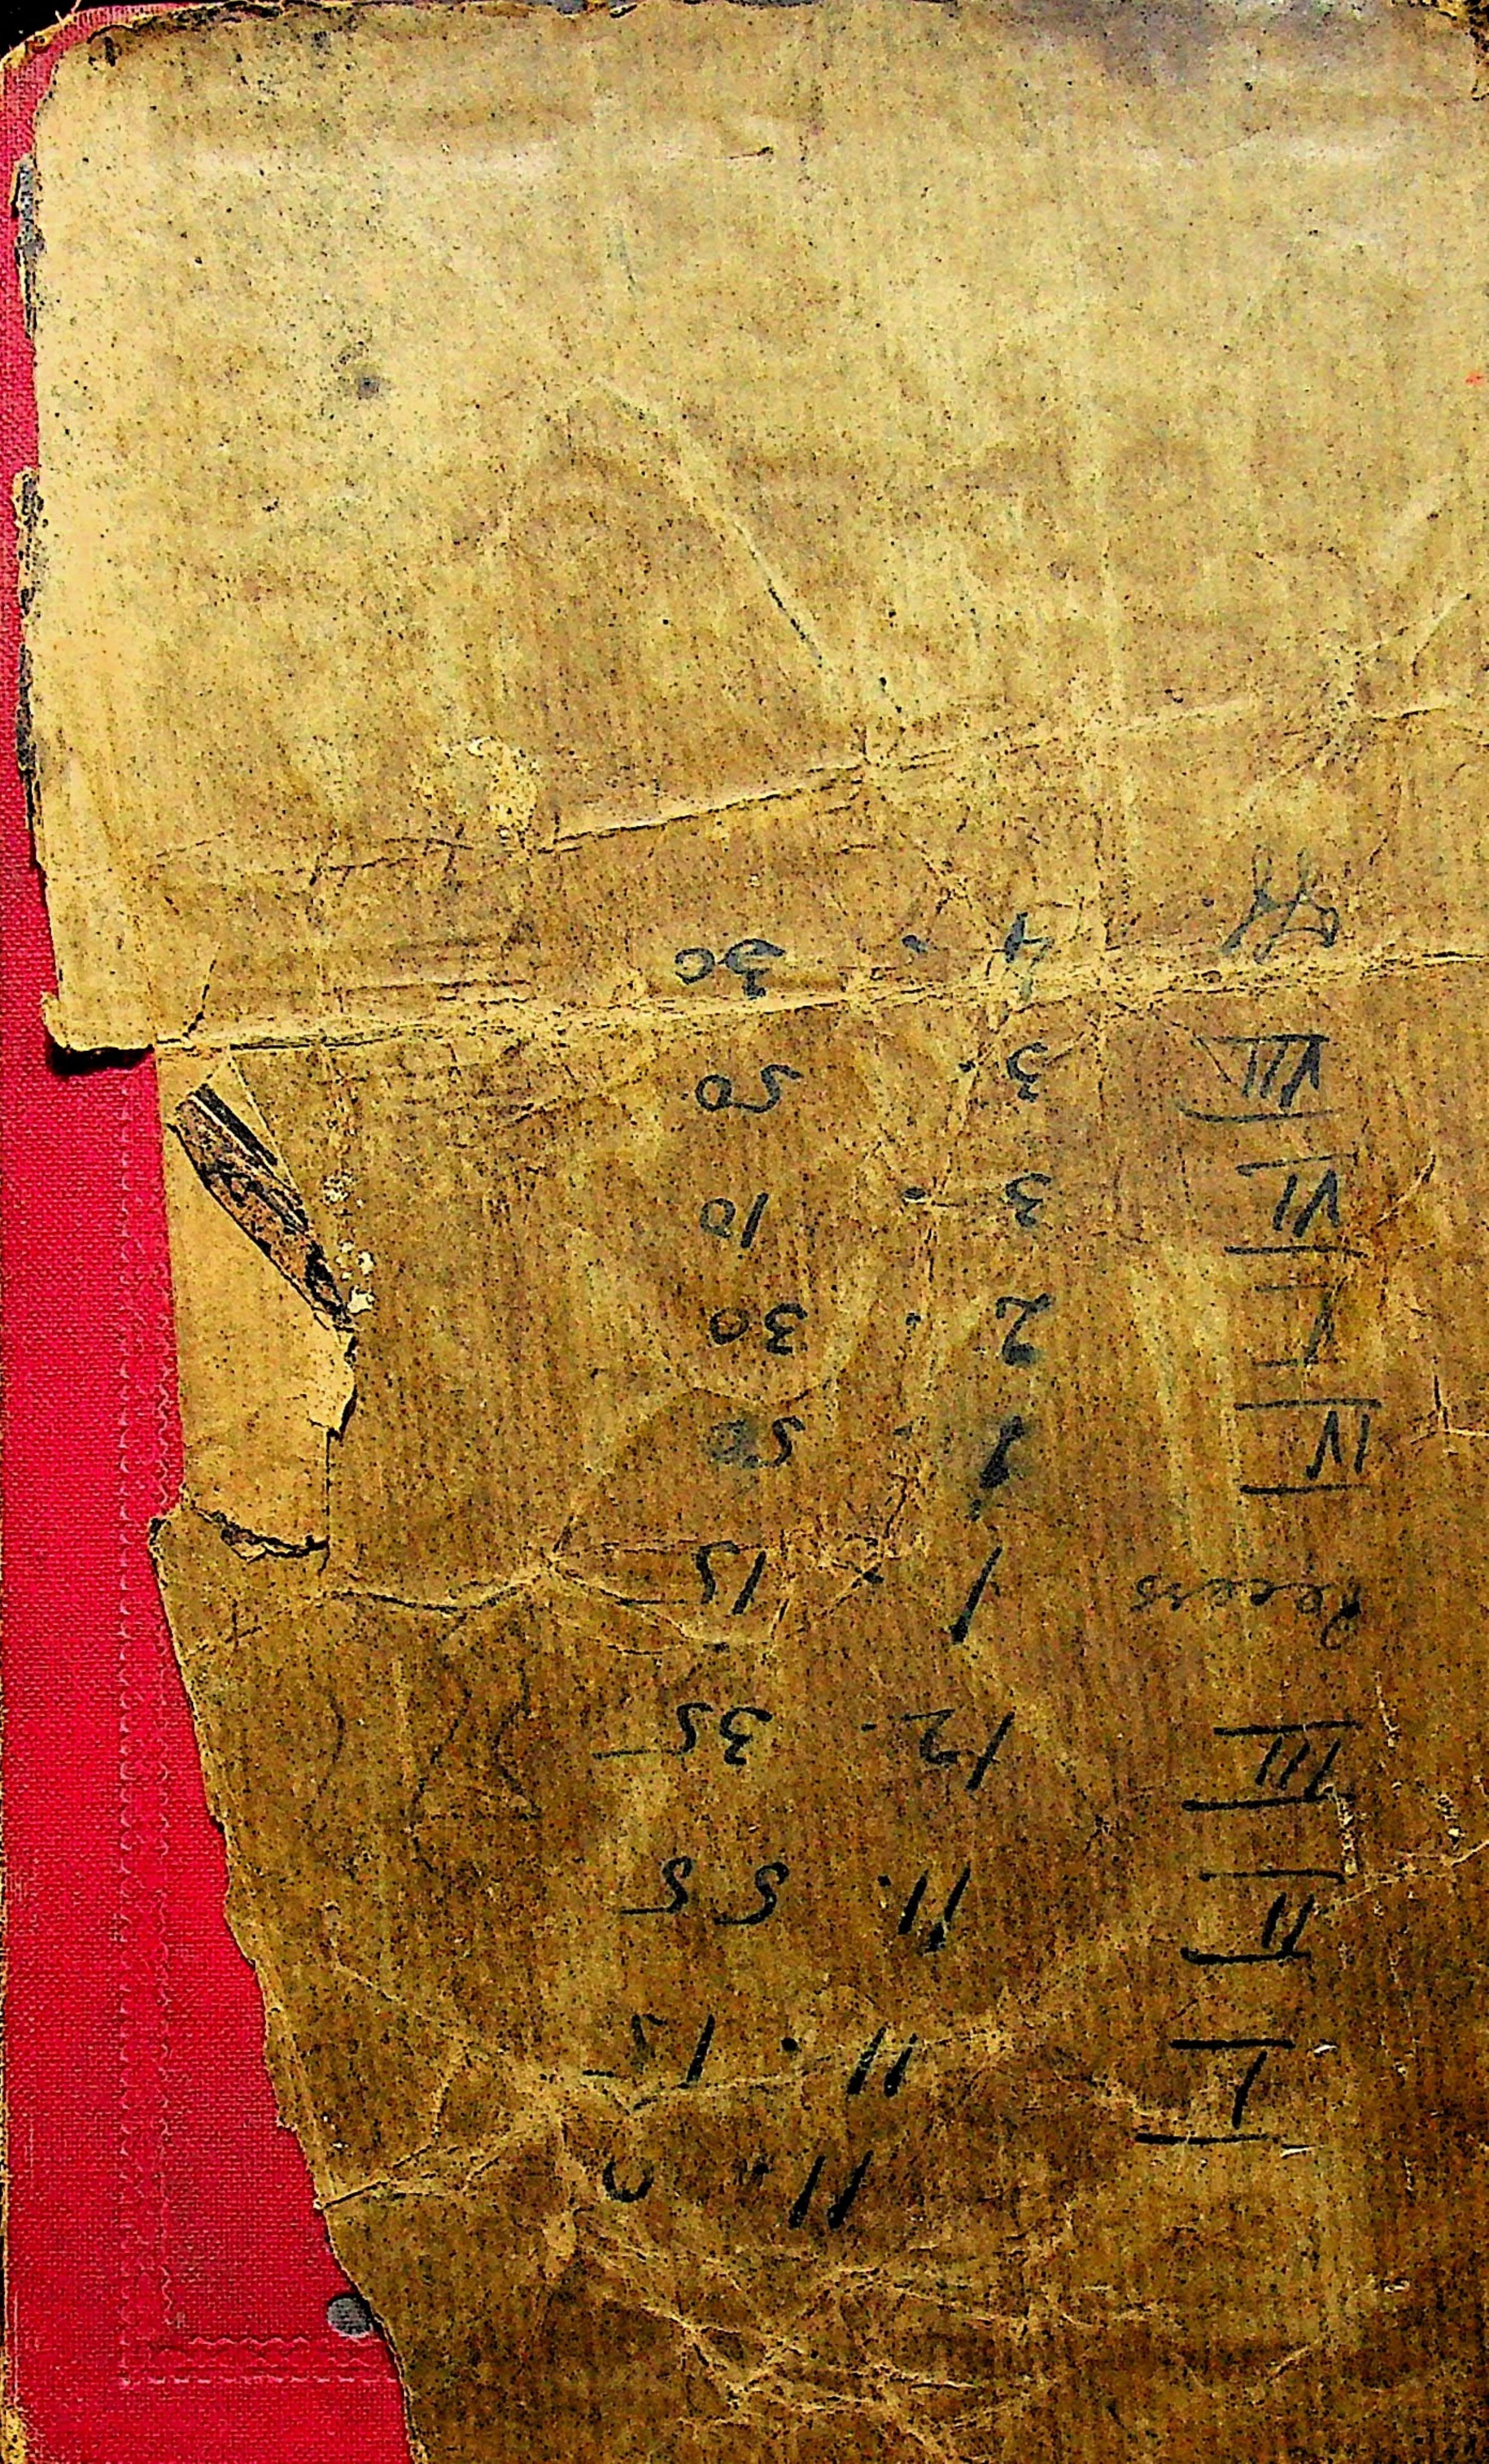 11 . 0
I 11 . 15
II 11. 55
III 12. 35
Recess 1 . 15
IV 1 . 50
V 2 . 30
VI 3 . 10
VII 3 . 50
4 . 30